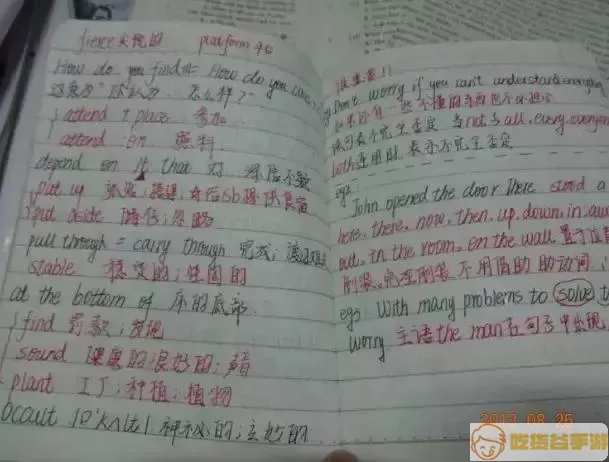 fierce 失托的 platform 平台
How do you find it = How do you like
这表为"你认为...怎么样?"
attend + place 参加
attend on 照料
depend on it that 对...深信不疑
put up 张贴;搭建;为sb提供食宿
put aside 储存;忽略
pull through = carry through 完成;渡过难关
stable 稳定的;坚固的
at the bottom of 库的底部
find 罚款;发现
sound 健康的 良好的;声音
plant 工厂;种植;植物
occult /ɒ'kʌlt/ 神秘的;玄妙的
很重要!!
eg Don't worry if you can't understand everything
如果你有一些不懂的东西也不必担心
该句表不完全否定 当not与all, every, everyone
both连用时 表示不完全否定
eg:
John opened the door. There stood a
here, there, now, then, up, down, in, away
out, in the room, on the wall 置于位首
倒装,完全倒装 不用借助助动词
eg: With many problems to solve
worry 主语the man在句子中出现,
2012 08 25
吃货谷手游